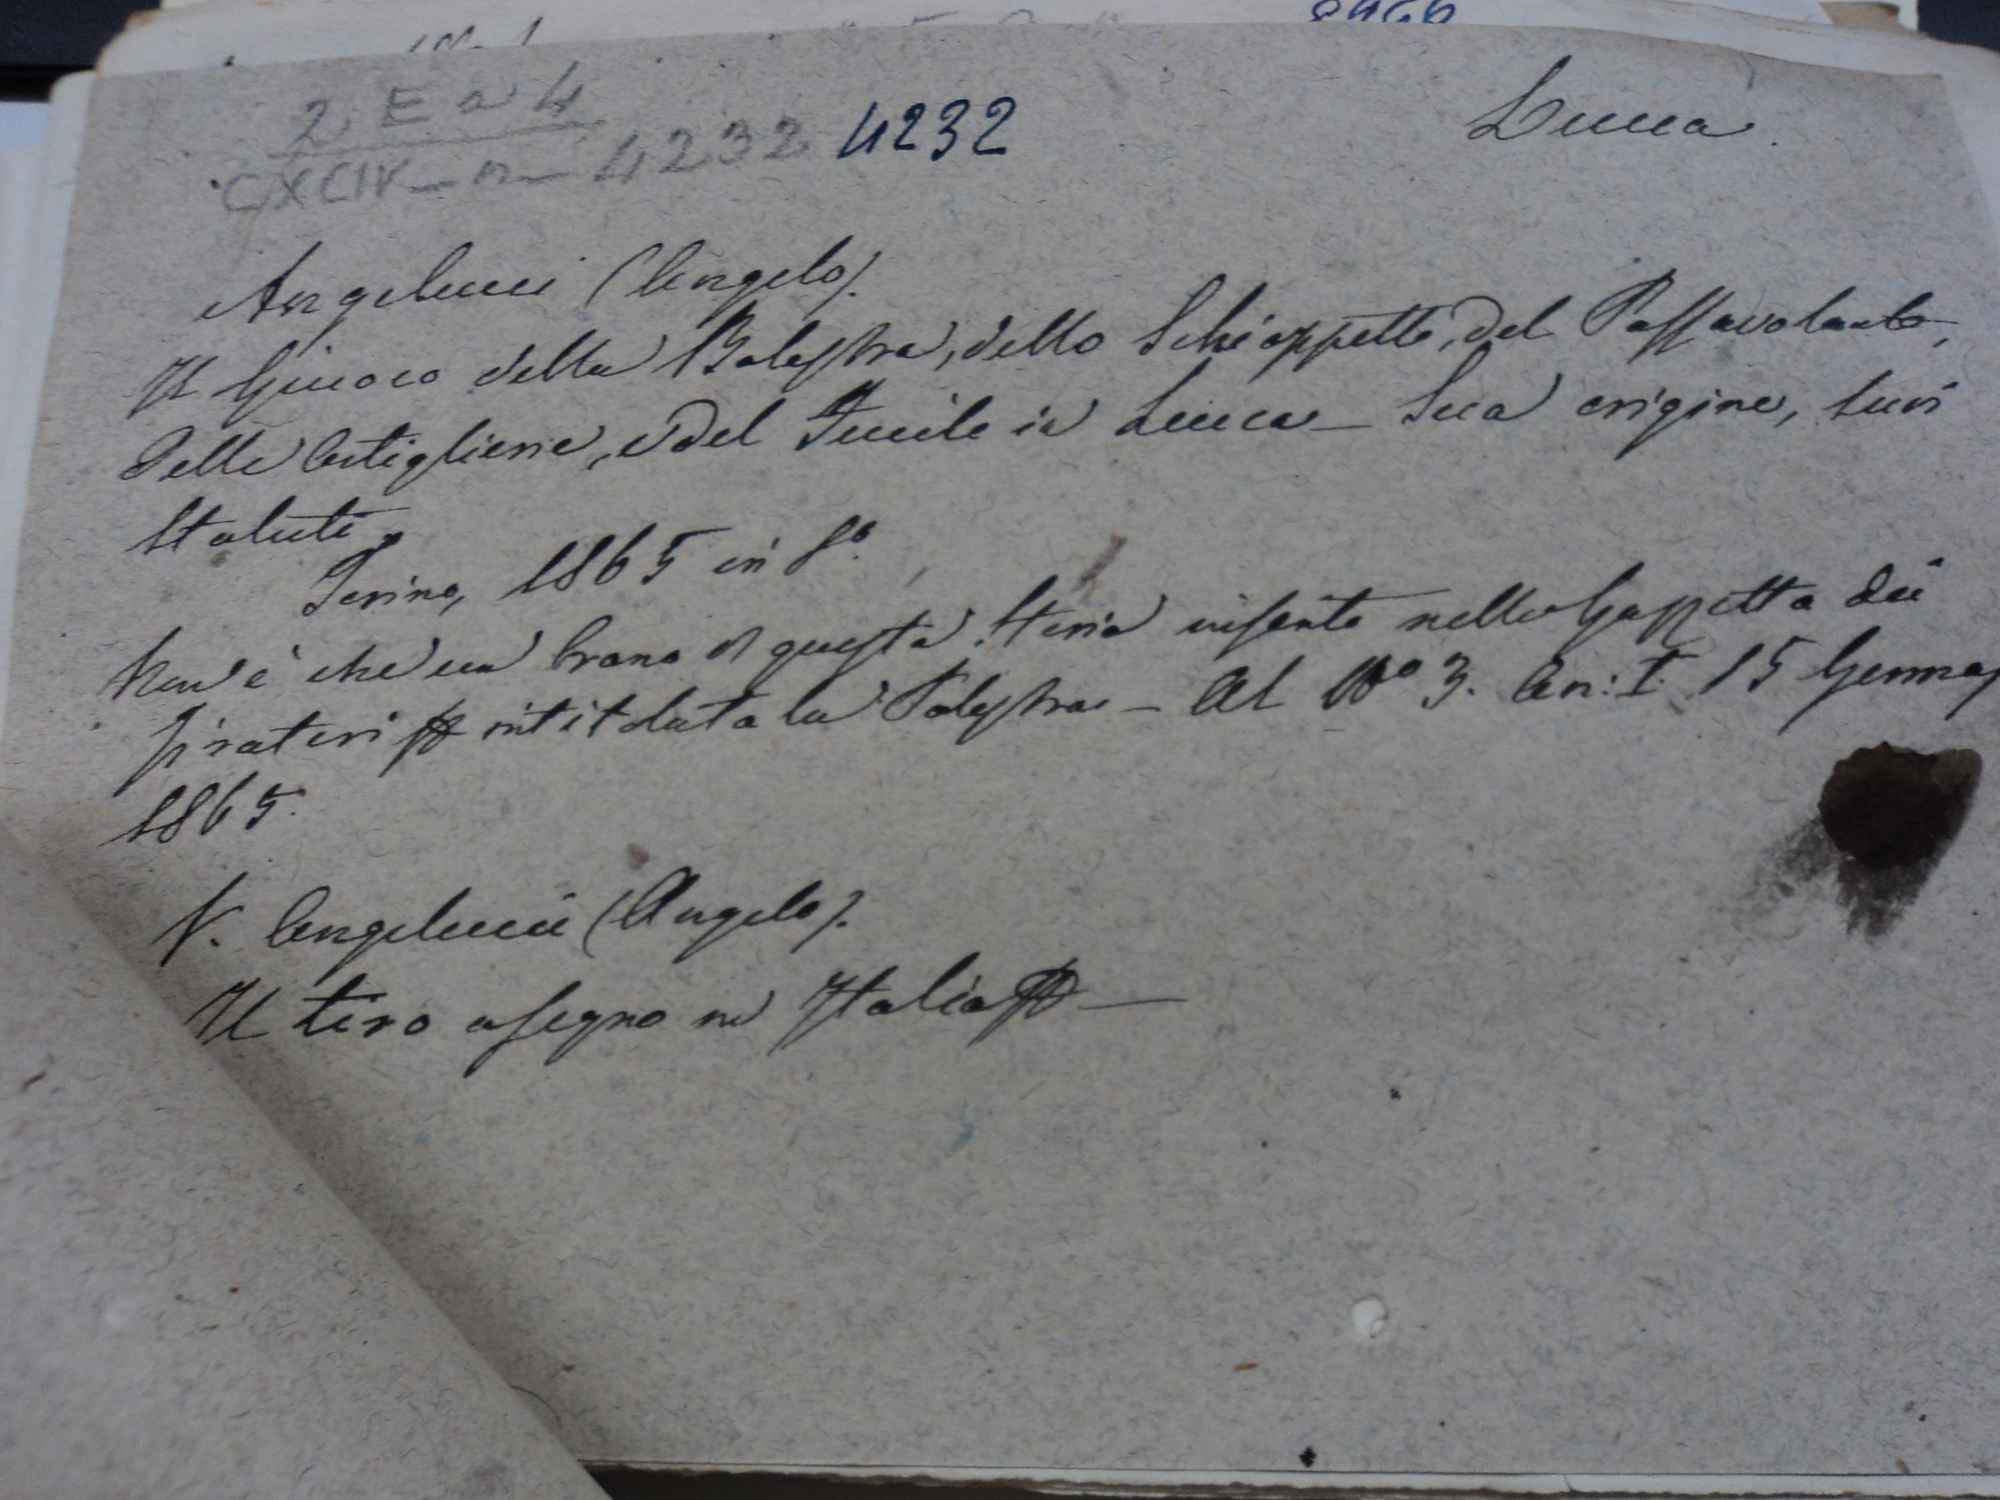 2 E a 4
CXCIV - n - 4232 4232
Lucca.
Angelucci (Angelo).
Il Giuoco della Balestra, dello Schioppetto, del Passavolante,
delle Artiglierie, e del Fucile in Lucca - Sua origine, suoi
Statuti.
Torino, 1865 in 8º.
Non è che un brano di questa Storia inserito nella Gazzetta dei
tiratori intitolata la Palestra - Al Nº 3. An: I. 15 Gennaj
1865.
V. Angelucci (Angelo).
Il tiro a segno in Italia